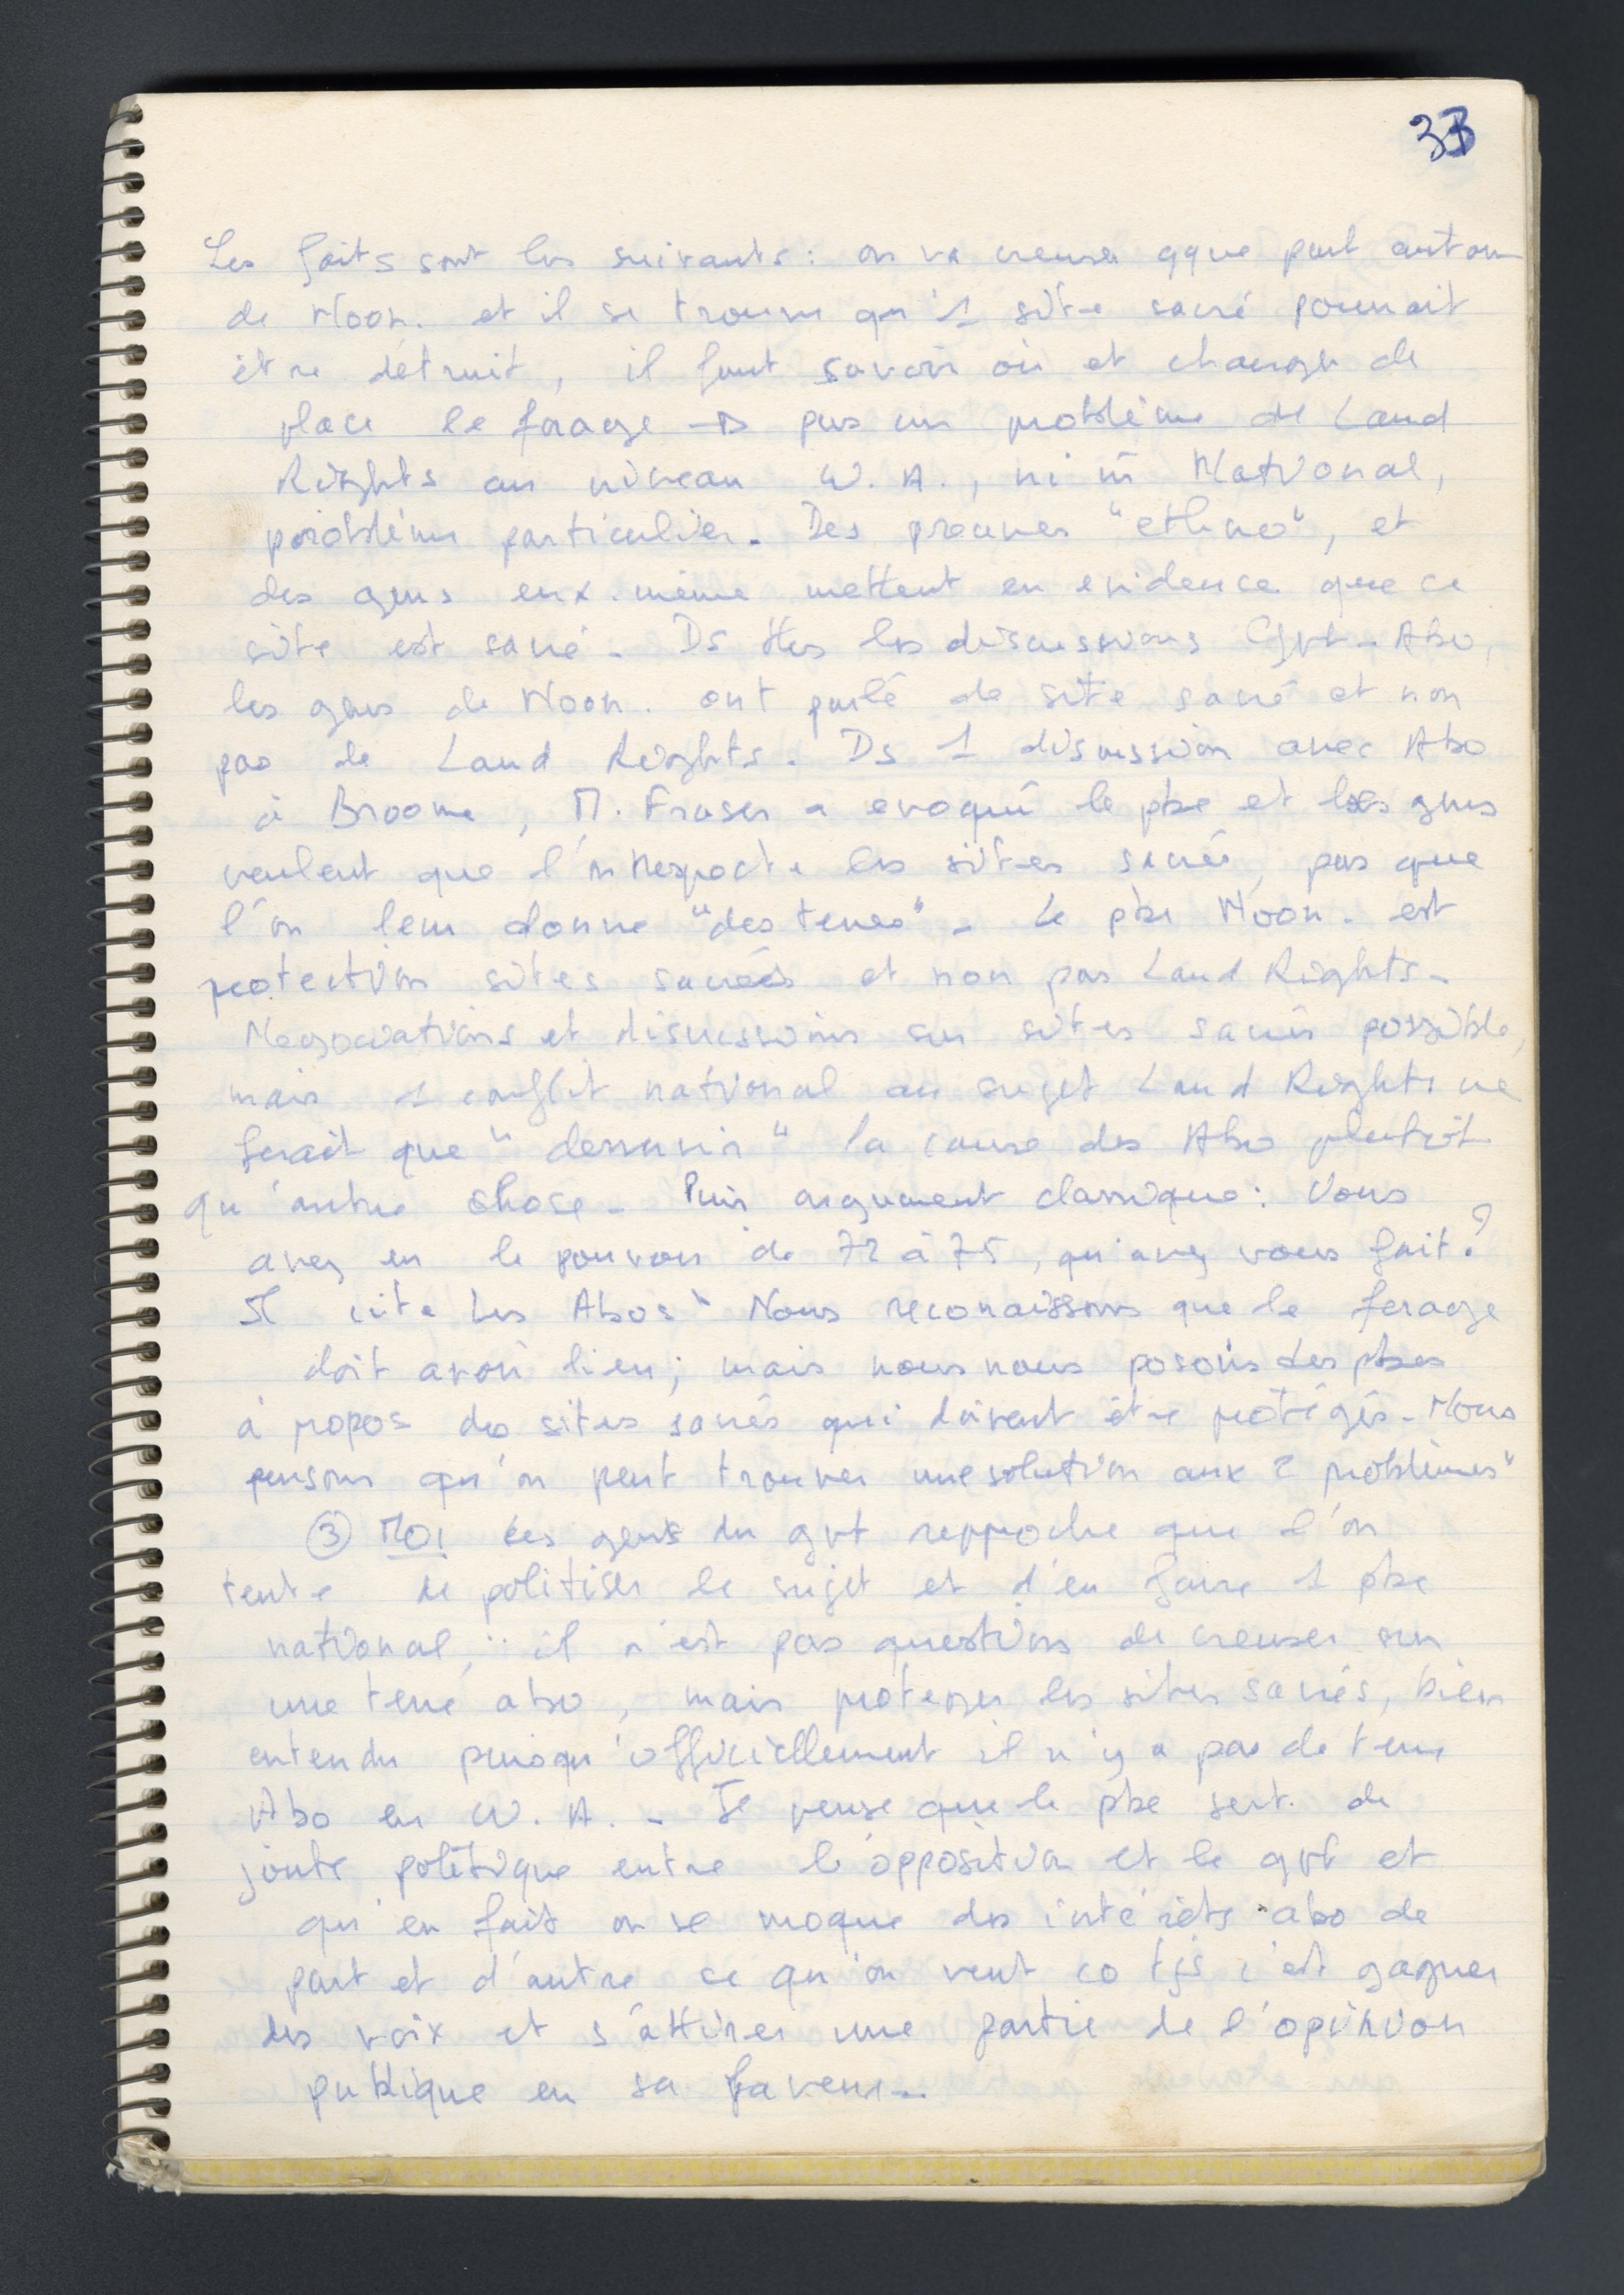 33
Les faits sont les suivants : on va creuser qque part autour
de Noon. et il se trouve qu'1 site sacré pourrait
être détruit, il faut savoir où et changer de
place le forage → pas un problème de Land
Rights au niveau W.A., ni in National,
problème particulier. Des preuves "ethno", et
des gens eux.même mettent en evidence que ce
site est sacré. Ds ttes les discussions Gvt-Abo,
les gens de Noon. ont parlé de site sacré et non
pas de Land Rights. Ds 1 discussion avec Abo
à Broome, M. Fraser a evoqué le pbe et les gens
veulent que l'on respecte les sites sacrés, pas que
l'on leur donne "des terres". Le pbe Noon. est
protection sites sacrés et non pas Land Rights.
Negociations et discussions sur sites sacrés possible,
mais 1 conflit national au sujet Land Rights ne
ferait que "desservir" la cause des Abo plutôt
qu'autre chose. Puis argument classique : Vous
avez eu le pouvoir de 72 à 75, qu'avez vous fait ?
Il cite les Abos "Nous reconaissons que le forage
doit avoir lieu ; mais nous nous posons des pbes
à propos des sites sacrés qui doivent être protégés. Nous
pensons qu'on peut trouver une solution aux 2 problèmes"
③ MOI Les gens du gvt repproche que l'on
tente de politiser le sujet et d'en faire 1 pbe
national, : il n'est pas questions de creuser sur
une terre abo, mais proteger les sites sacrés, bien
entendu puisqu'officiellement il n'y a pas de terre
Abo en W.A. - Je pense que le pbe sert. de
joute politique entre l'opposition et le gvt et
qu'en fait on se moque des intérêts abo de
part et d'autre ce qu'on veut co tjs c'est gagner
des voix et s'attirer une partie de l'opinion
publique en sa faveur.